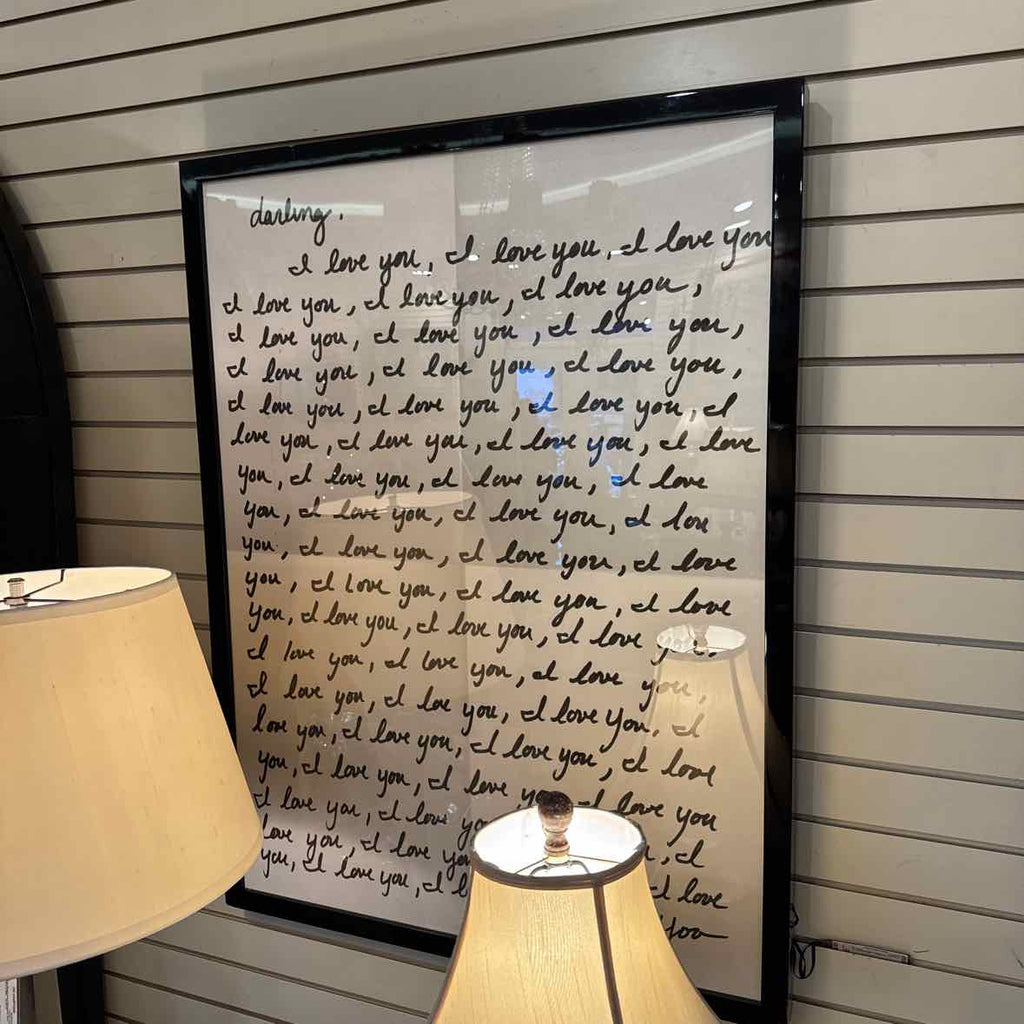 darling.
I love you, I love you, I love you
I love you, I love you, I love you,
I love you, I love you, I love you,
I love you, I love you, I love you,
I love you, I love you, I love you, I
love you, I love you, I love you, I love
you, I love you, I love you, I love
you, I love you, I love you, I love
you, I love you, I love you, I love
you, I love you, I love you, I love
you, I love you, I love you, I love you,
I love you, I love you, I love you,
I love you, I love you, I love you, I
love you, I love you, I love you, I love
you, I love you, I love you, I love you
I love you, I love
love you, I love you, I
you, I love you, I I love
you